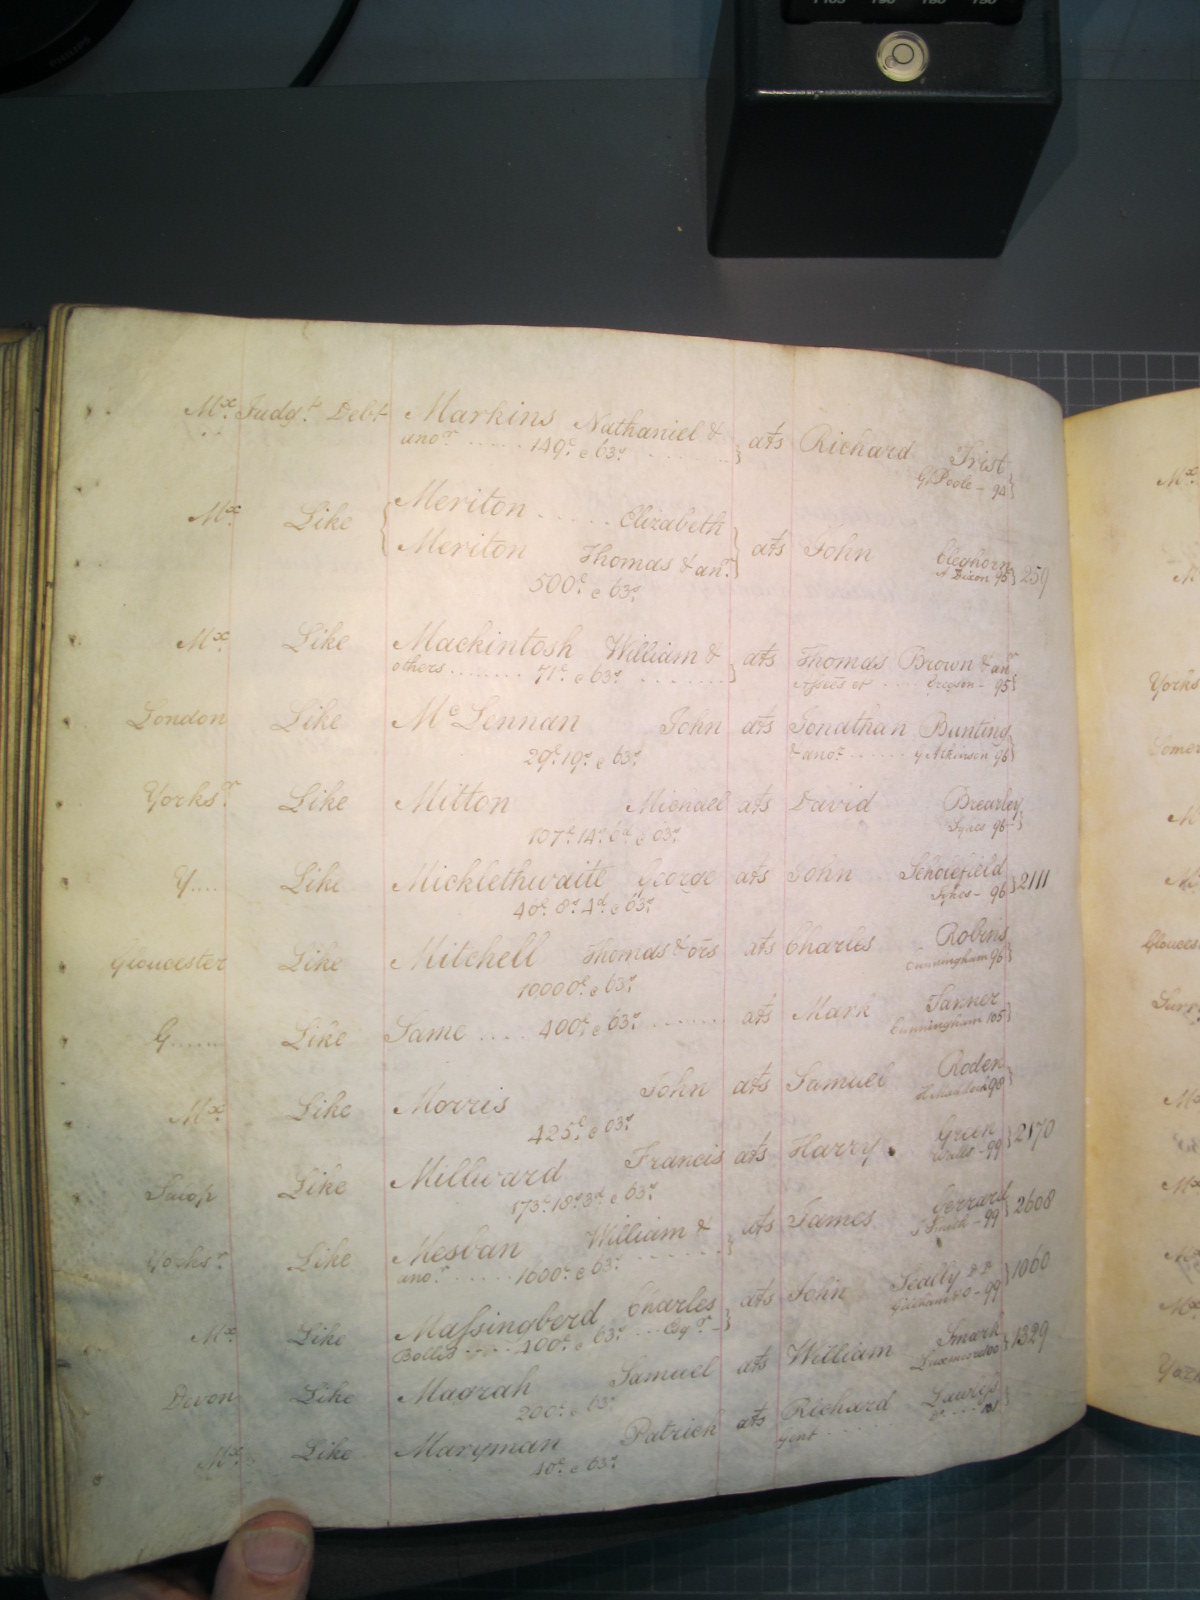 Mx. Judgt. Debt Markins Nathaniel & } ats Richard Frist
anor. ..... 149£ & 63s ........ G Poole - 94 }
Mx. Like { Meriton ..... Elizabeth
Meriton Thomas & anr. } ats John Cleghorn
500£ & 63s. A Dixon 95 } 259
Mx. Like Mackintosh William & } ats Thomas Brown & anr
others ........ 71£ & 63s ....... Assees of .... Gregson - 95 }
London Like McLennan John ats Jonathan Bunting
29£ 19s & 63s & anor. ...... G Atkinson 96 }
Yorksr. Like Mitton Michael ats David Brearley
107£ 14s 6d & 63s Sykes 96 - }
Y.... Like Micklethwaite George ats John Scholefield
40£ 8s 4d & 63s Sykes - 96 } 2111
Gloucester Like Mitchell Thomas & ors ats Charles Robins
10000£ & 63s Cunningham 96 }
G...... Like Same .... 400£ & 63s ....... ats Mark Tanner
Cunningham 105 }
Mx. Like Morris John ats Samuel Roden
425£ & 63s 98 }
Salop Like Millward Francis ats Harry Green
173£ 18s 3d & 63s Walls - 99 } 2170
Yorksr. Like Mesban William & } ats James Gerrard
anor. ...... 1000£ & 63s ...... J Smith - 99 } 2608
Mx. Like Massingberd Charles } ats John
Bolles ..... 400£ & 63s .... Esqr. - 99 } 1060
Devon Like Magrah Samuel ats William Smark
200£ & 63s 100 } 1329
Mx. Like Maryman Patrick ats Richard
40£ & 63s gent ...... 101 }
Mx.
Yorks
Somer
Mx
Glouces
Surr
Mx
Mx
Mx
Mx
York
PHILIPS